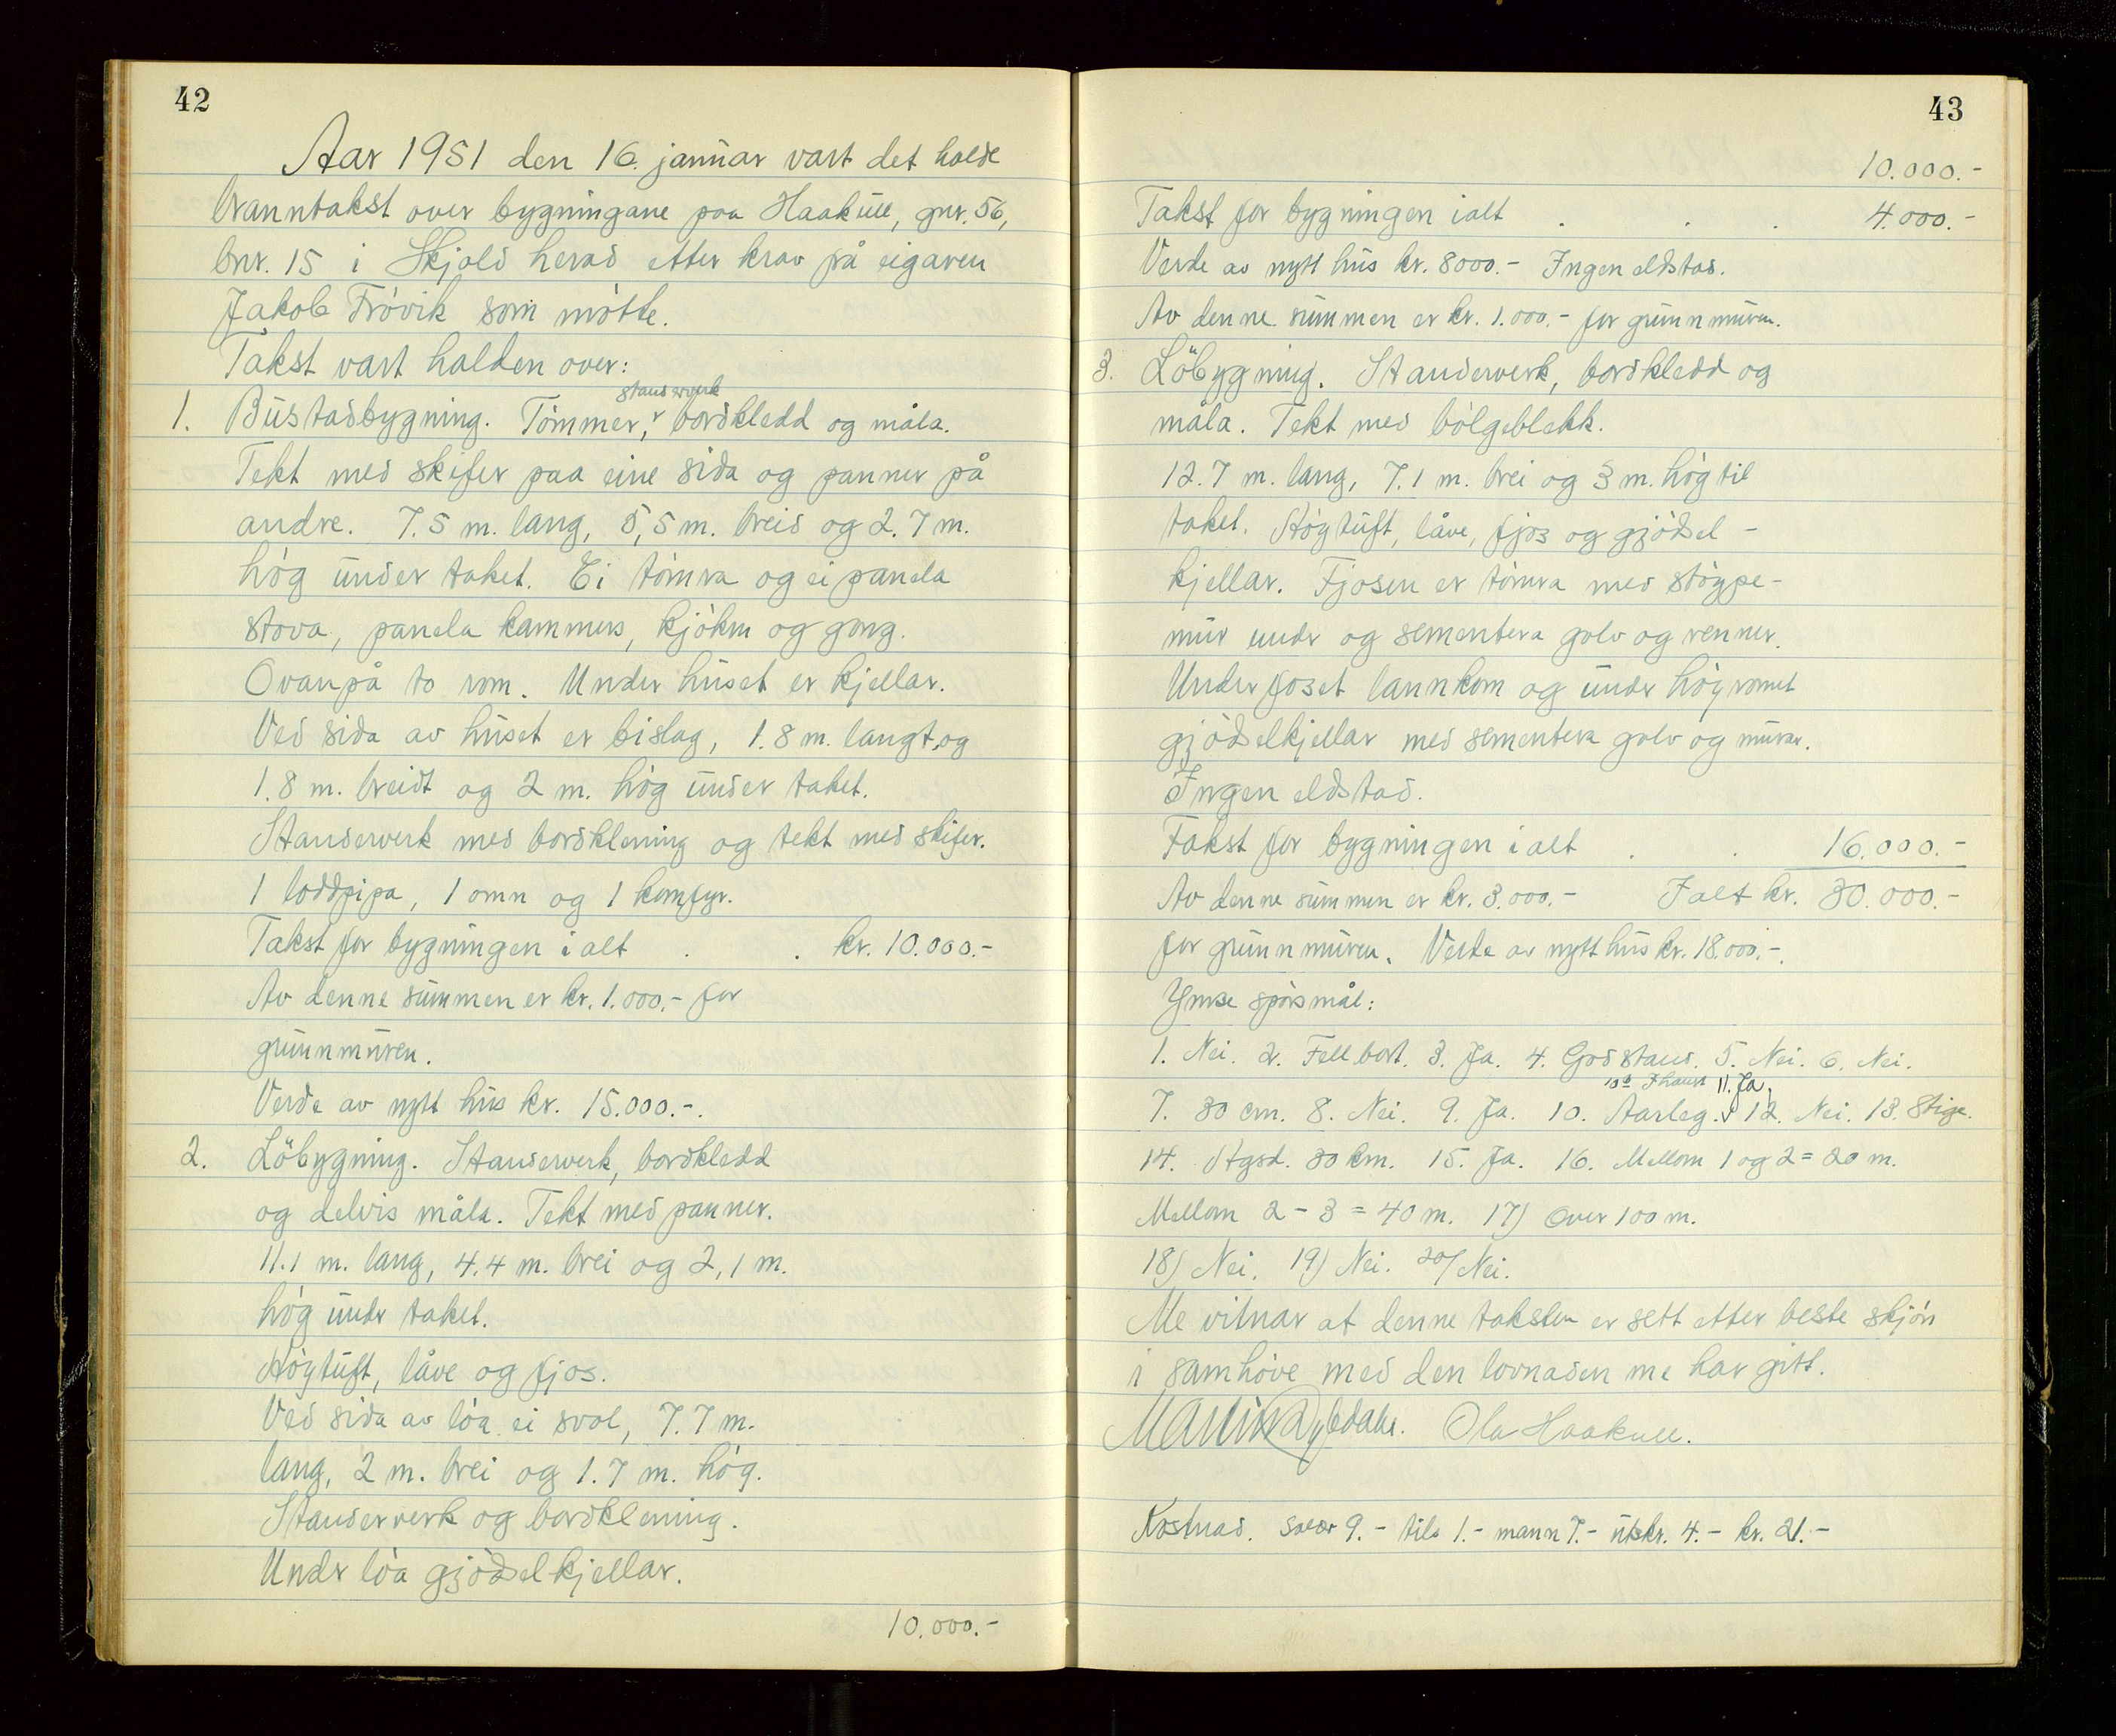 42
Aar 1951 den 16. januar vart det halde
branntakst over bygningane paa Haakull, gnr. 56,
bnr. 15 i Skjold herad etter krav på eigaren
Jakob Frövik som mötte.
Takst vart halden over:
standerverk
1. Bustadbygning. Tömmer, bordkledd og måla.
Tekt med skifer paa eine sida og panner på
andre. 7.5 m. lang, 5,5 m. breid og 2.7 m.
hög under taket. Ei tömra og ei panela
stova, panela kammers, kjöken og gong.
Ovanpå to rom. Under huset er kjellar.
Ved sida av huset er bislag, 1.8 m. langt, og
1.8 m. breidt og 2 m. hög under taket.
Standerverk med bordklening og tekt med skifer.
1 loddpipa, 1 omn og 1 komfyr.
Takst for bygningen ialt . . kr. 10.000.-
Av denne summen er kr. 1.000.- for
grunnmuren.
Verde av nytt hus kr. 15.000.-.
2. Löbygning. Standerverk, bordkledd
og delvis måla. Tekt med panner.
11.1 m. lang, 4.4 m. brei og 2,1 m.
hög under taket.
Högtuft, låve og fjos.
Ved sida av löa ei sval, 7.7 m.
lang, 2 m. brei og 1.7 m. hög.
Standerverk og bordklening.
Under löa gjödselkjellar.
10.000.-
43
10.000.-
Takst for bygningen ialt . . . 4.000.-
Verde av nytt hus kr. 8000.- Ingen eldstad.
Av denne summen er kr. 1.000.- for grunnmuren.
3. Löbygning. Standerverk, bordkledd og
måla. Tekt med bölgeblekk.
12.7 m. lang, 7.1 m. brei og 3 m. hög til
taket. Högtuft, låve, fjos og gjödsel-
kjellar. Fjosen er tömra med stöype-
mur under og sementera golv og renner.
Under foset lannkom og under högromet
gjödselkjellar med sementera golv og murar.
Ingen eldstad.
Takst for bygningen ialt . . 16.000.-
Av denne summen er kr. 3.000.- Ialt kr. 30.000.-
for grunnmuren. Verde av nytt hus kr. 18.000.-.
Ymse spörsmål:
1. Nei. 2. Fell bort. 3. Ja. 4. God stand. 5. Nei. 6. Nei.
10b I haust 11. Ja.
7. 30 cm. 8. Nei. 9. Ja. 10. Aarleg. 12. Nei. 13. Stige.
14. 30 km. 15. Ja. 16. Mellom 1 og 2 = 20 m.
Mellom 2 - 3 = 40 m. 17) Over 100 m.
18) Nei. 19) Nei. 20/ Nei.
Me vitnar at denne taksten er sett etter beste skjön
i samhöve med den lovnaden me har gitt.
Martin Ola Haakull.
Kostnad. 9.- tils 1.- mann 7.- utskr. 4.- kr. 21.-